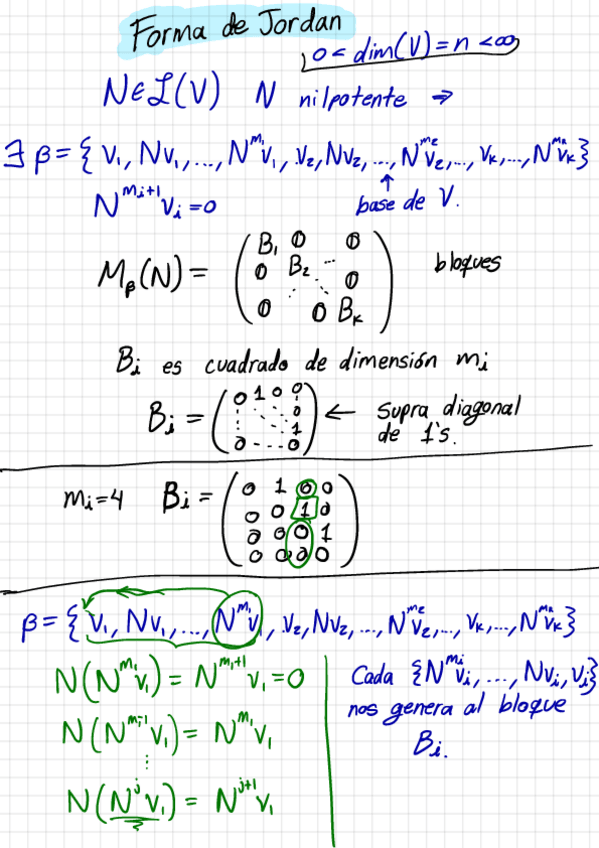 Forma de Jordan
0 < dim(V) = n < ∞
N ∈ ℒ(V) N nilpotente ⇒
∃ β = { v₁, Nv₁, ..., N^{m₁}v₁, v₂, Nv₂, ..., N^{m₂}v₂, ..., v_k, ..., N^{m_k}v_k }
N^{m_i+1} v_i = 0 ↑ base de V.
M_β(N) = ( B₁ 0 0 bloques
0 B₂ ... 0
0 0 B_k )
B_i es cuadrado de dimensión m_i
B_i = ( 0 1 0 0 ← supra diagonal
⋮ ⋱ 0 de 1's.
⋮ 1
0 - - - 0 )
m_i = 4 B_i = ( 0 1 0 0
0 0 1 0
0 0 0 1
0 0 0 0 )
β = { v₁, Nv₁, ..., N^{m₁}v₁, v₂, Nv₂, ..., N^{m₂}v₂, ..., v_k, ..., N^{m_k}v_k }
N(N^{m₁}v₁) = N^{m₁+1}v₁ = 0
N(N^{m₁-1}v₁) = N^{m₁}v₁
⋮
N(N^j v₁) = N^{j+1}v₁
Cada { N^{m_i}v_i, ..., Nv_i, v_i }
nos genera al bloque
B_i.